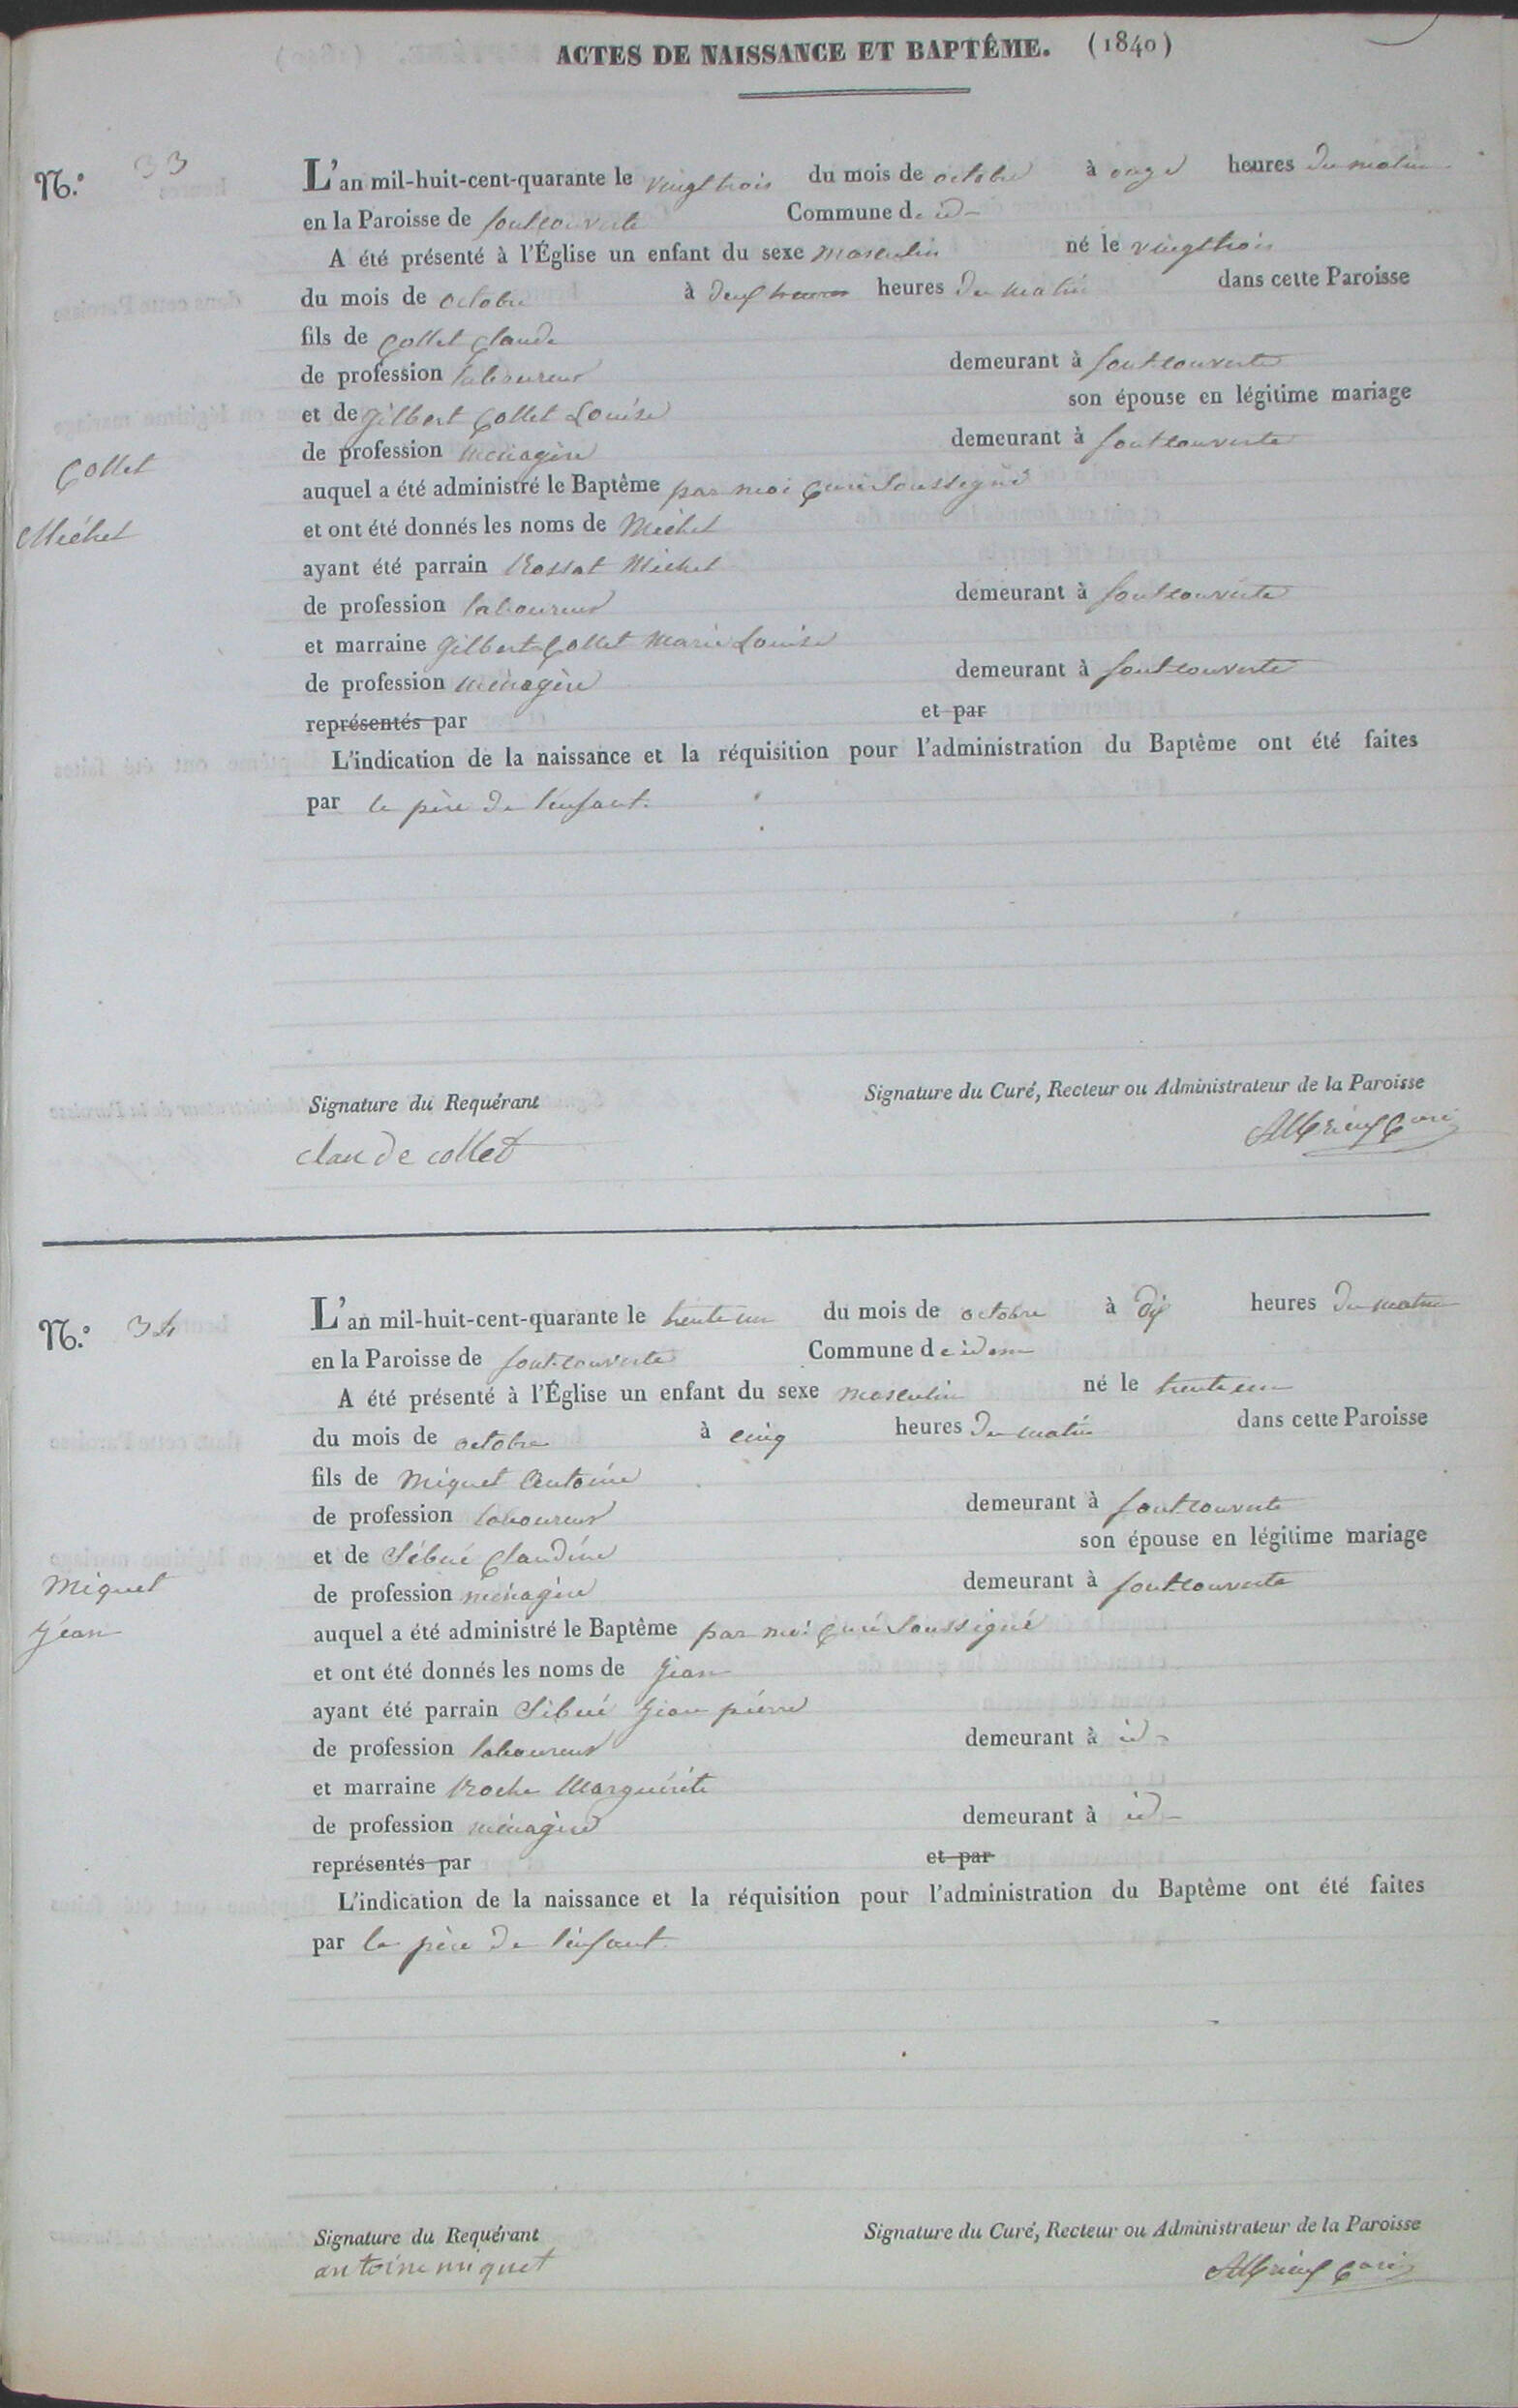 ACTES DE NAISSANCE ET BAPTÊME. (1840)
N.° 33
L'an mil-huit-cent-quarante le vingt trois du mois de octobre à onze heures du matin
en la Paroisse de fontcouverte Commune de id-
A été présenté à l'Église un enfant du sexe masculin né le vingt trois
du mois de octobre à deux heures du matin dans cette Paroisse
fils de Collet Claude
de profession laboureur demeurant à fontcouverte
et de Gilbert Collet Louise son épouse en légitime mariage
de profession ménagère demeurant à fontcouverte
Collet
auquel a été administré le Baptême par moi Curé Soussigné
Michel
et ont été donnés les noms de Michel
ayant été parrain Rossat Michel
de profession laboureur demeurant à fontcouverte
et marraine Gilbert Collet Marie Louise
de profession ménagère demeurant à fontcouverte
représentés par et par
L'indication de la naissance et la réquisition pour l'administration du Baptême ont été faites
par le père de l'enfant.
Signature du Requérant Signature du Curé, Recteur ou Administrateur de la Paroisse
claude collet Curé
N.° 34
L'an mil-huit-cent-quarante le trente un du mois de octobre à dix heures du matin
en la Paroisse de fontcouverte Commune de idem
A été présenté à l'Église un enfant du sexe masculin né le trente un
du mois de octobre à cinq heures du matin dans cette Paroisse
fils de Miquet Antoine
de profession laboureur demeurant à fontcouverte
et de Sibué Claudine son épouse en légitime mariage
Miquet
de profession ménagère demeurant à fontcouverte
Jean
auquel a été administré le Baptême par moi Curé Soussigné
et ont été donnés les noms de Jean
ayant été parrain Sibué Jean pierre
de profession laboureur demeurant à id-
et marraine Roche Marguérite
de profession ménagère demeurant à id-
représentés par et par
L'indication de la naissance et la réquisition pour l'administration du Baptême ont été faites
par le père de l'enfant.
Signature du Requérant Signature du Curé, Recteur ou Administrateur de la Paroisse
antoine miquet Curé